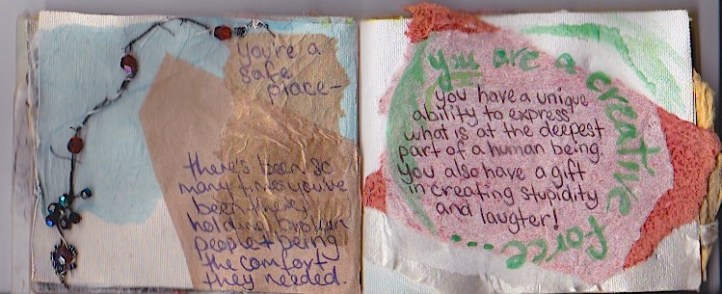 you're a
safe
place-
there's been so
many times you've
been there,
holding broken
people & being
the comfort
they needed.
you are a creative force...
you have a unique
ability to express
what is at the deepest
part of a human being.
You also have a gift
in creating stupidity
and laughter!